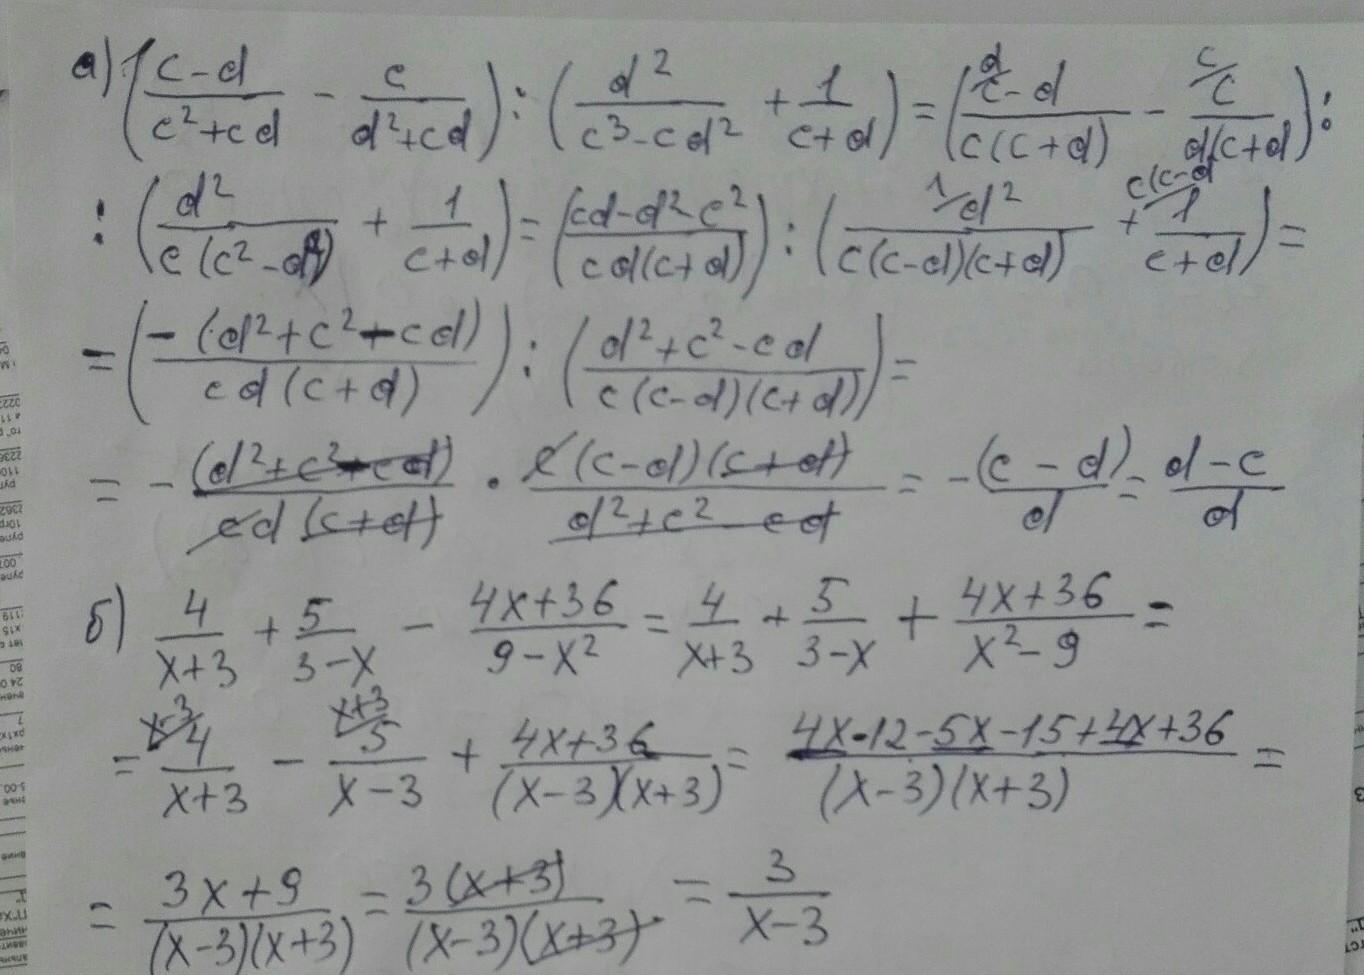 а) (c-d/c²+cd - c/d²+cd) : (d²/c³-cd² + 1/c+d) = (d/c-d/c(c+d) - c/c/d(c+d)) :
: (d²/c(c²-d²) + 1/c+d) = (cd-d²-c²/cd(c+d)) : (1/d²/c(c-d)(c+d) + c(c-d/1/c+d) =
= (-(d²+c²-cd)/cd(c+d)) : (d²+c²-cd/c(c-d)(c+d)) =
= - (d²+c²-cd)/cd(c+d) · c(c-d)(c+d)/d²+c²-cd = -(c-d)/d = d-c/d
б) 4/x+3 + 5/3-x - 4x+36/9-x² = 4/x+3 + 5/3-x + 4x+36/x²-9 =
= x-3/4/x+3 - x+3/5/x-3 + 4x+36/(x-3)(x+3) = 4x-12-5x-15+4x+36/(x-3)(x+3) =
= 3x+9/(x-3)(x+3) = 3(x+3)/(x-3)(x+3) = 3/x-3